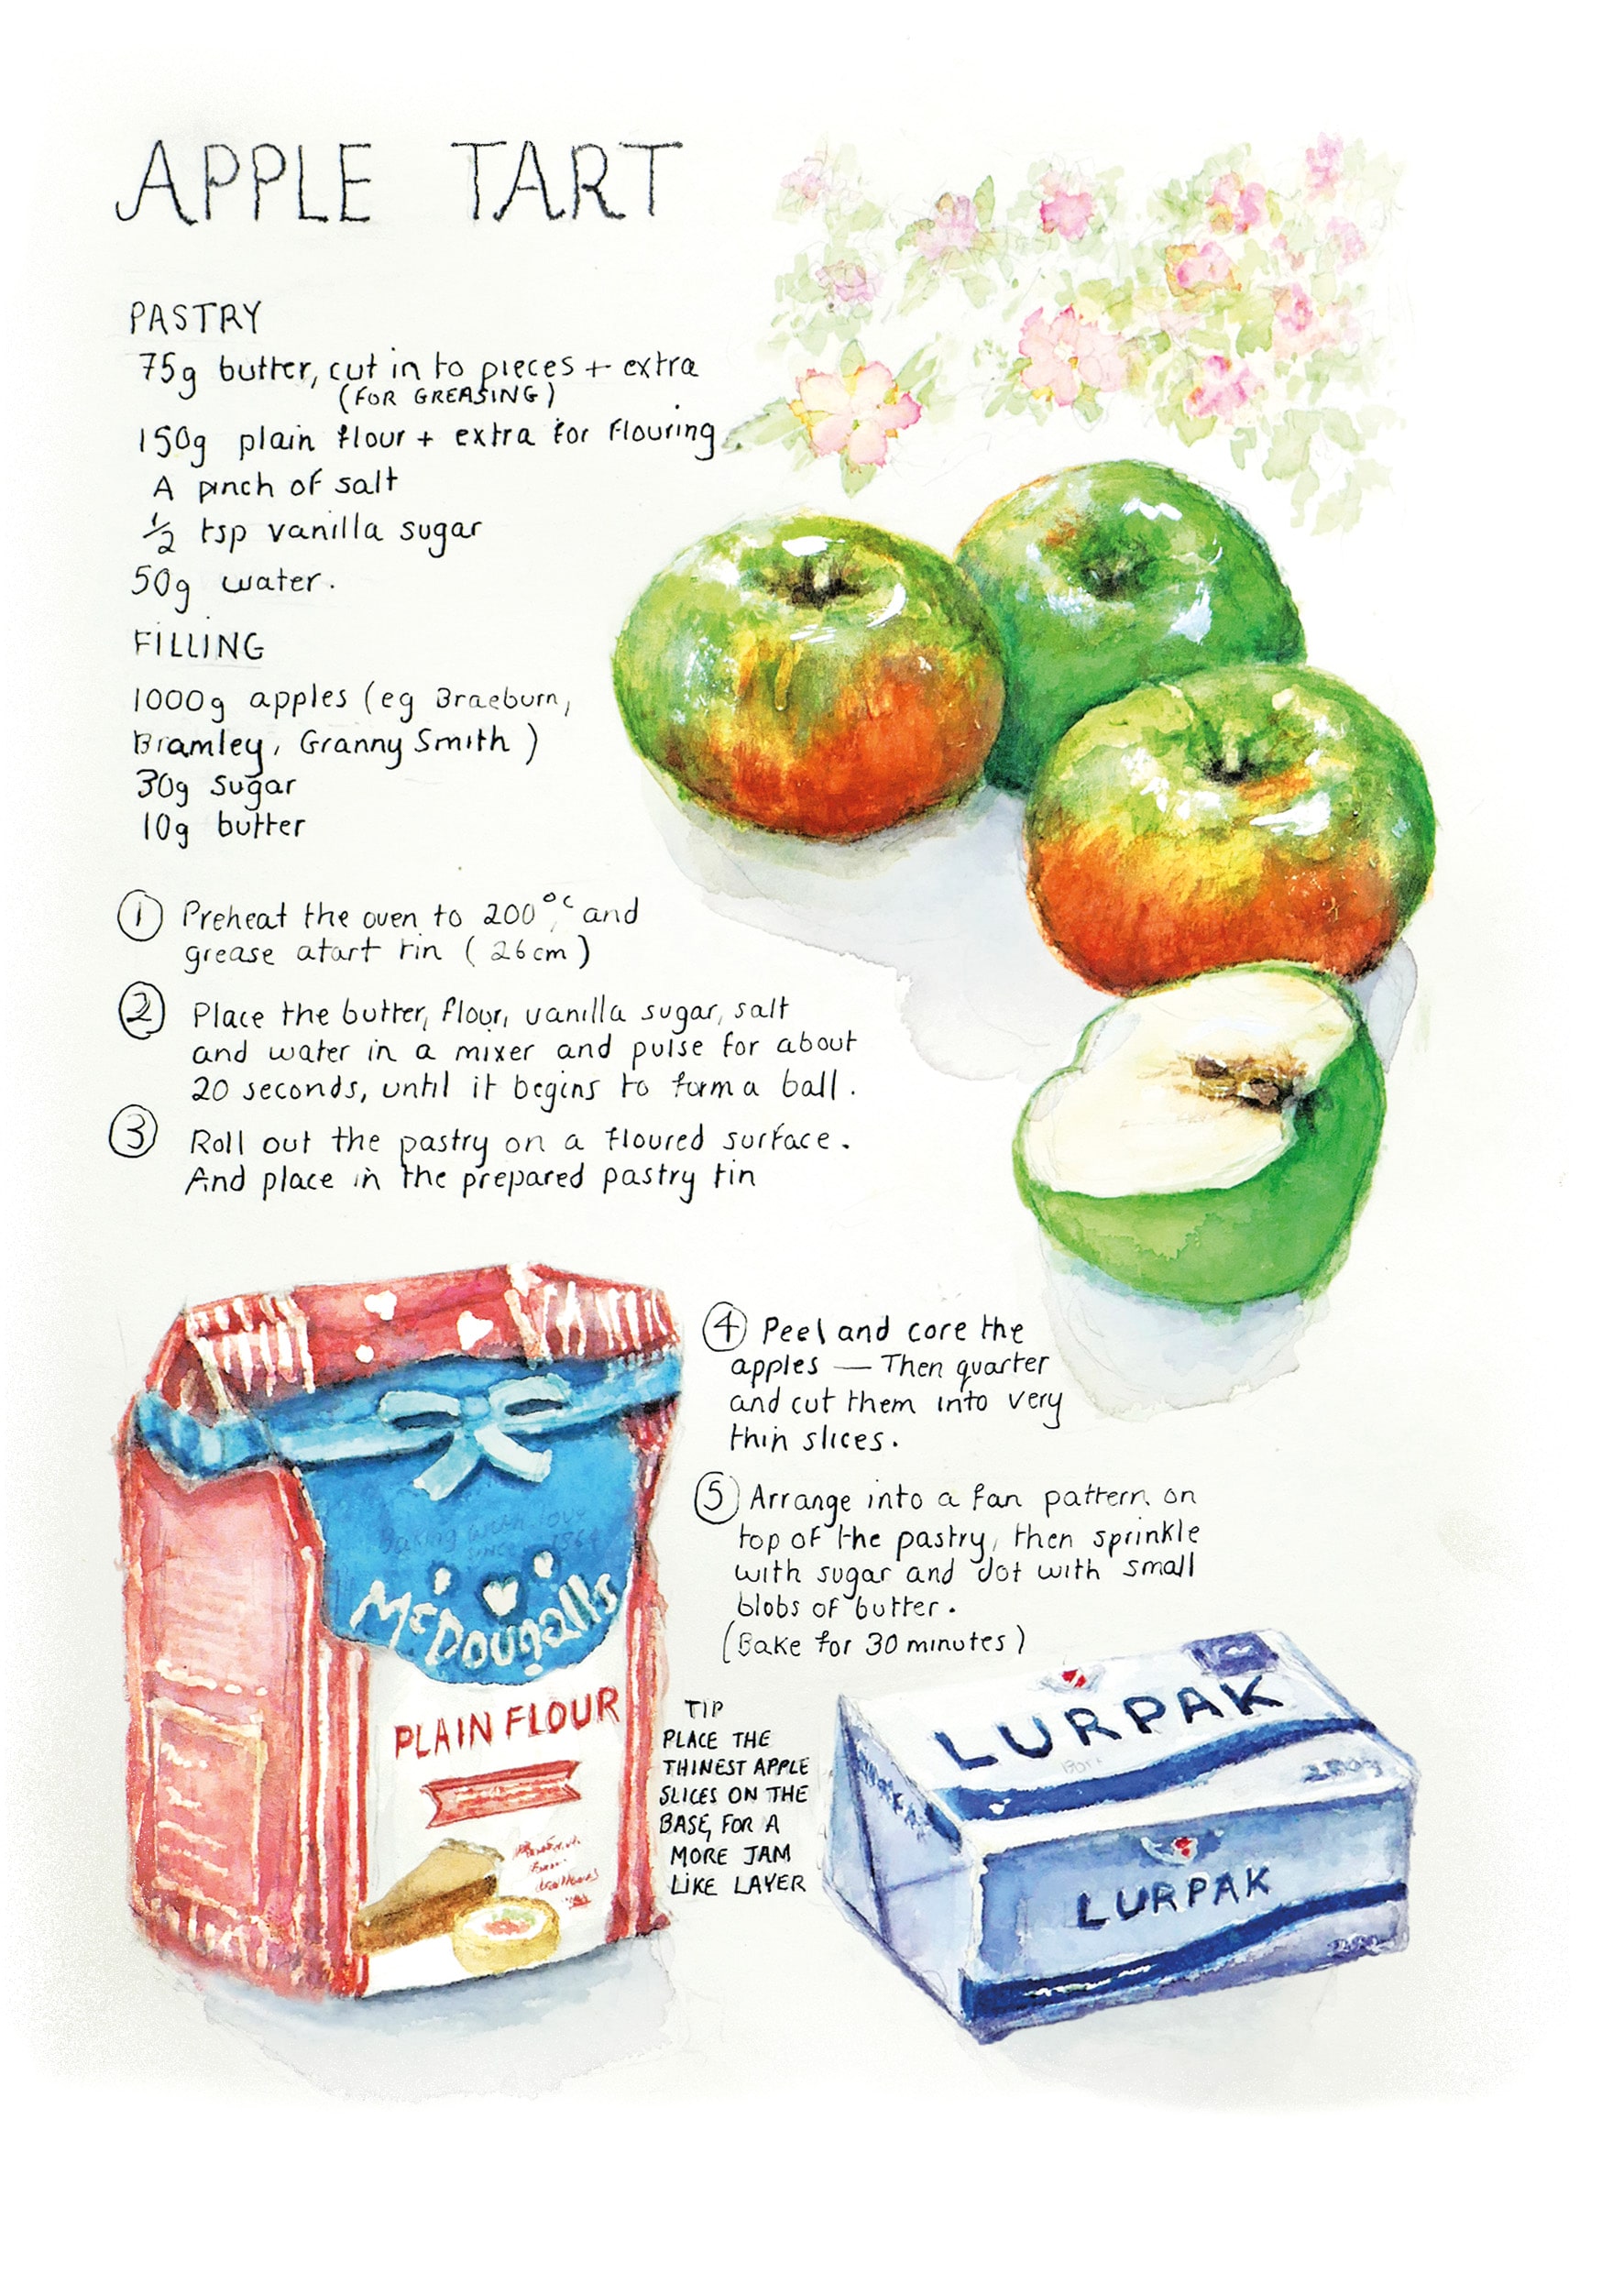 APPLE TART
PASTRY
75g butter, cut in to pieces + extra
(FOR GREASING)
150g plain flour + extra for flouring
A pinch of salt
1/2 tsp vanilla sugar
50g water.
FILLING
1000g apples (eg Braeburn,
Bramley, Granny Smith)
30g sugar
10g butter
1 Preheat the oven to 200°c, and
grease a tart tin (26cm)
2 Place the butter, flour, vanilla sugar, salt
and water in a mixer and pulse for about
20 seconds, until it begins to form a ball.
3 Roll out the pastry on a floured surface.
And place in the prepared pastry tin
4 Peel and core the
apples — Then quarter
and cut them into very
thin slices.
5 Arrange into a fan pattern on
top of the pastry, then sprinkle
with sugar and dot with small
blobs of butter.
(Bake for 30 minutes)
TIP
PLACE THE
THINEST APPLE
SLICES ON THE
BASE, FOR A
MORE JAM
LIKE LAYER
Baking with love
SINCE 1864
McDougalls
PLAIN FLOUR
LURPAK
LURPAK